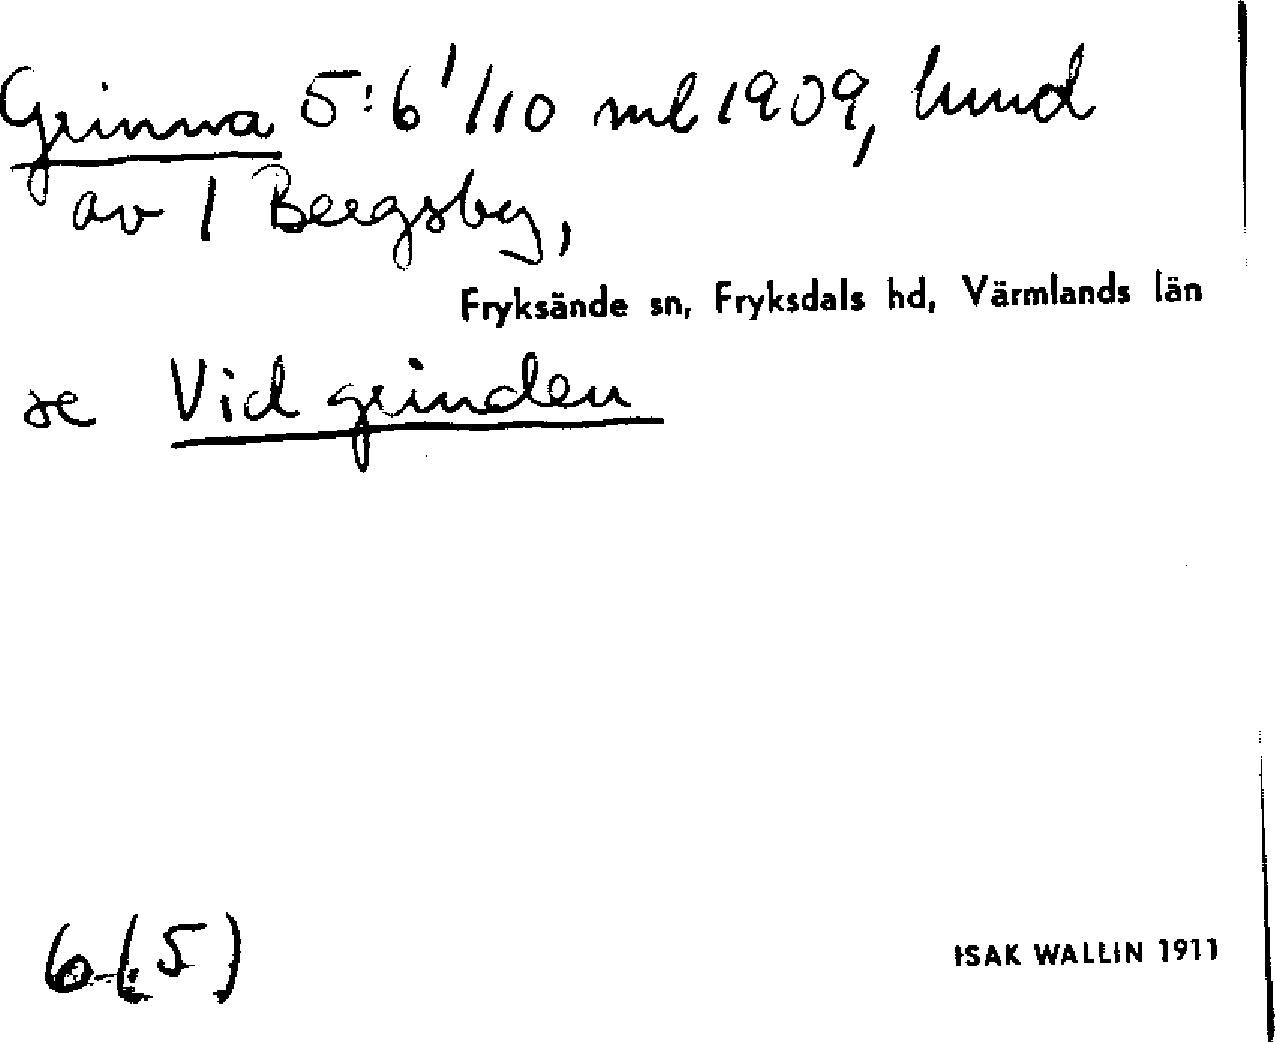 Grinna 5:6 1/10 ml 1909, hmd
av 1 Bergsby,
Fryksände sn, Fryksdals hd, Värmlands län
se Vid grinden
6 (5)
ISAK WALLIN 1911